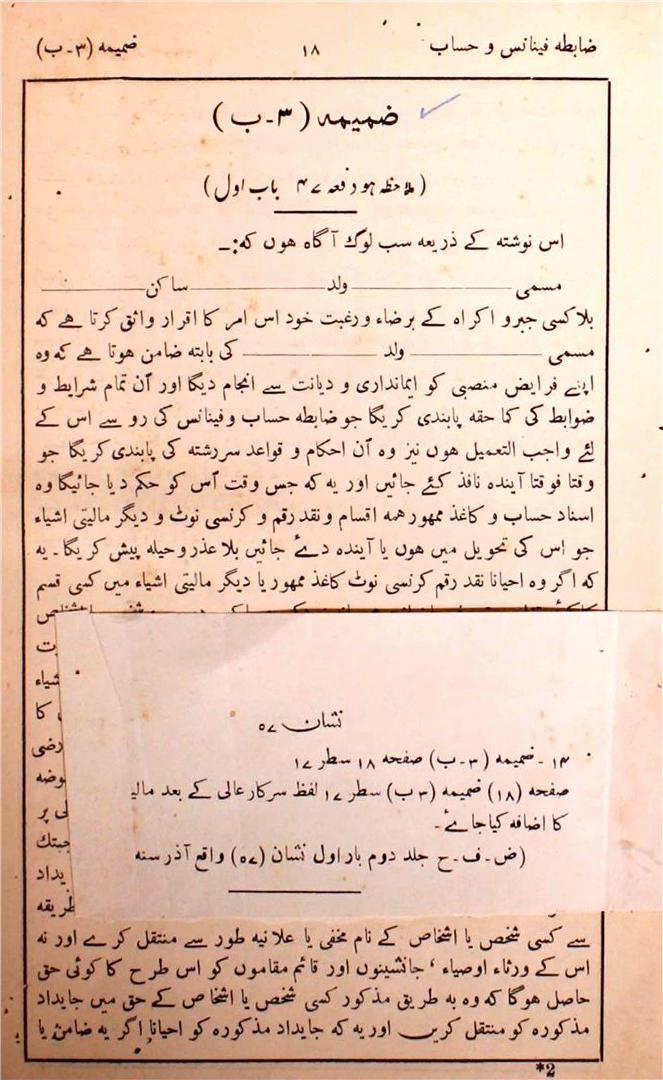 ضابطہ فینانس و حساب ۱۸ ضمیمہ (۳۔ب)
ضمیمہ (۳۔ب)
(ملاحظہ ہو دفعہ ۴۷ باب اول)
اس نوشتہ کے ذریعہ سب لوگ آگاہ ہوں کہ:۔
مسمی ولد ساکن
بلا کسی جبر و اکراہ کے برضاء و رغبت خود اس امر کا اقرار واثق کرتا ہے کہ
مسمی ولد کی بابتہ ضامن ہوتا ہے کہ وہ
اپنے فرایض منصبی کو ایمانداری و دیانت سے انجام دیگا اور اُن تمام شرایط و
ضوابط کی کما حقہ پابندی کریگا جو ضابطہ حساب و فینانس کی رو سے اس کے
لئے واجب التعمیل ہوں نیز وہ اُن احکام و قواعد سررشتہ کی پابندی کریگا جو
وقتا فوقتا آیندہ نافذ کئے جائیں اور یہ کہ جس وقت اُس کو حکم دیا جائیگا وہ
اسناد حساب و کاغذ ممہور ہمہ اقسام و نقد رقم و کرنسی نوٹ و دیگر مالیتی اشیاء
جو اس کی تحویل میں ہوں یا آیندہ دۓ جائیں بلا عذر و حیلہ پیش کریگا۔ یہ
کہ اگر وہ احیانا نقد رقم کرنسی نوٹ کاغذ ممہور یا دیگر مالیتی اشیاء میں کسی قسم
نشان ۵۷
۱۴۔ ضمیمہ (۳۔ب) صفحہ ۱۸ سطر ۱۷
صفحہ (۱۸) ضمیمہ (۳ ب) سطر ۱۷ لفظ سرکار عالی کے بعد مالیہ
کا اضافہ کیا جاۓ۔
(ض۔ف۔ح جلد دوم بار اول نشان (۵۷) واقع آذر سنہ
سے کسی شخص یا اشخاص کے نام مخفی یا علانیہ طور سے منتقل کرے اور نہ
اس کے ورثاء اوصیاء، جانشینوں اور قائم مقاموں کو اس طرح کا کوئی حق
حاصل ہوگا کہ وہ بہ طریق مذکور کسی شخص یا اشخاص کے حق میں جایداد
مذکورہ کو منتقل کریں اور یہ کہ جایداد مذکورہ کو احیانا اگر یہ ضامن یا
2*